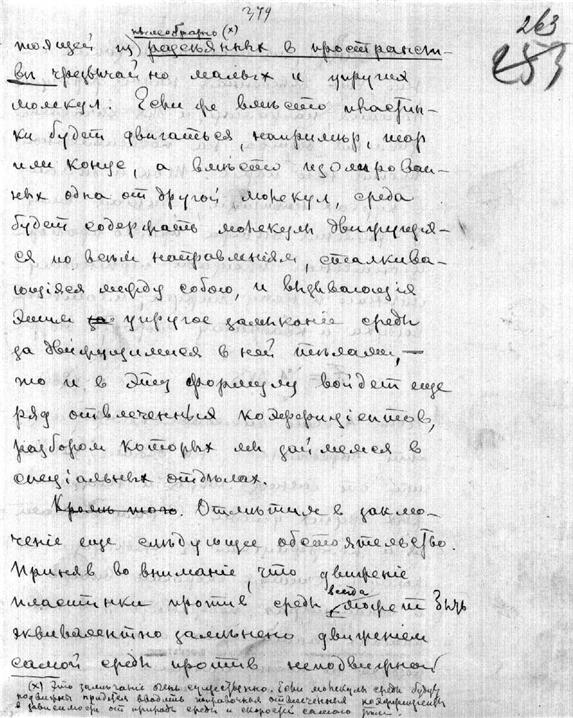 379
263
253
пылеобразно (x)
тоящей из рассѣянныхъ в пространст-
вѣ чрезвычайно малых и упругих
молекул. Если же вмѣсто пластин-
ки будет двигаться, например, шар
или конус, а вмѣсто изолирован-
ных одна от другой молекул, среда
будет содержать молекулы движущія-
ся по всѣм направленіям, сталкива-
ющіяся между собою, и вызывающія
этим за упругое замыканіе среды
за движущимися в ней тѣлами, —
то и в эту формулу войдет еще
ряд отвлеченных коэффиціентов,
разбором которых мы займемся в
спеціальных отдѣлах.
Кромѣ того. Отмѣтим в заклю-
ченіе еще слѣдующее обстоятельство.
Приняв во вниманіе, что движеніе
всегда
пластинки против среды может быть
эквивалентно замѣнено движеніем
самой среды против неподвижной
(x) Это замѣчаніе очень существенно. Если молекулы среды будут
подвижны придется вводить поправочные отвлеченные коэффиціенты
в зависимости от природы среды и скорости самого